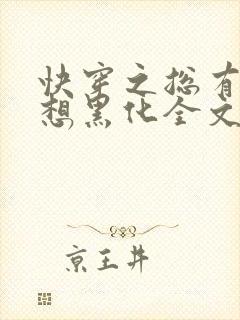 快穿之总有
想黑化全文
京王井